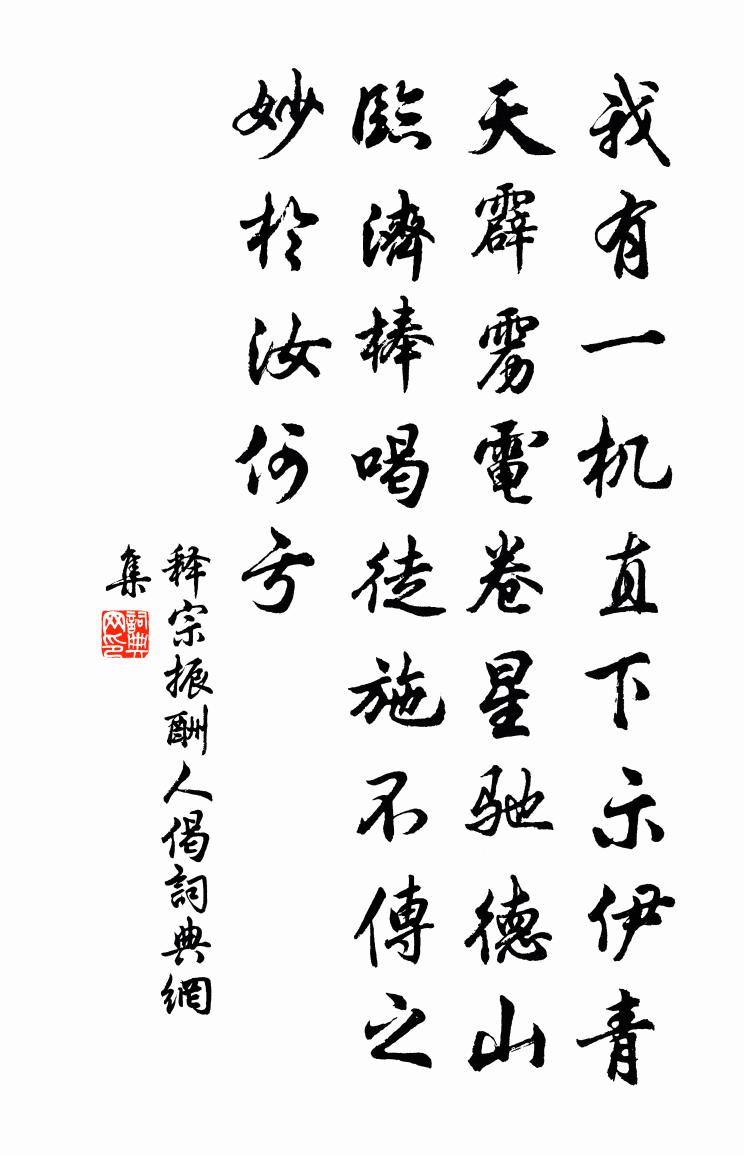 我有一机直下示伊青
天霹雳電卷星驰德山
臨濟棒喝徒施不傳之
妙於汝何亏
释宗振酬人偈詞典網
集
詞典网印